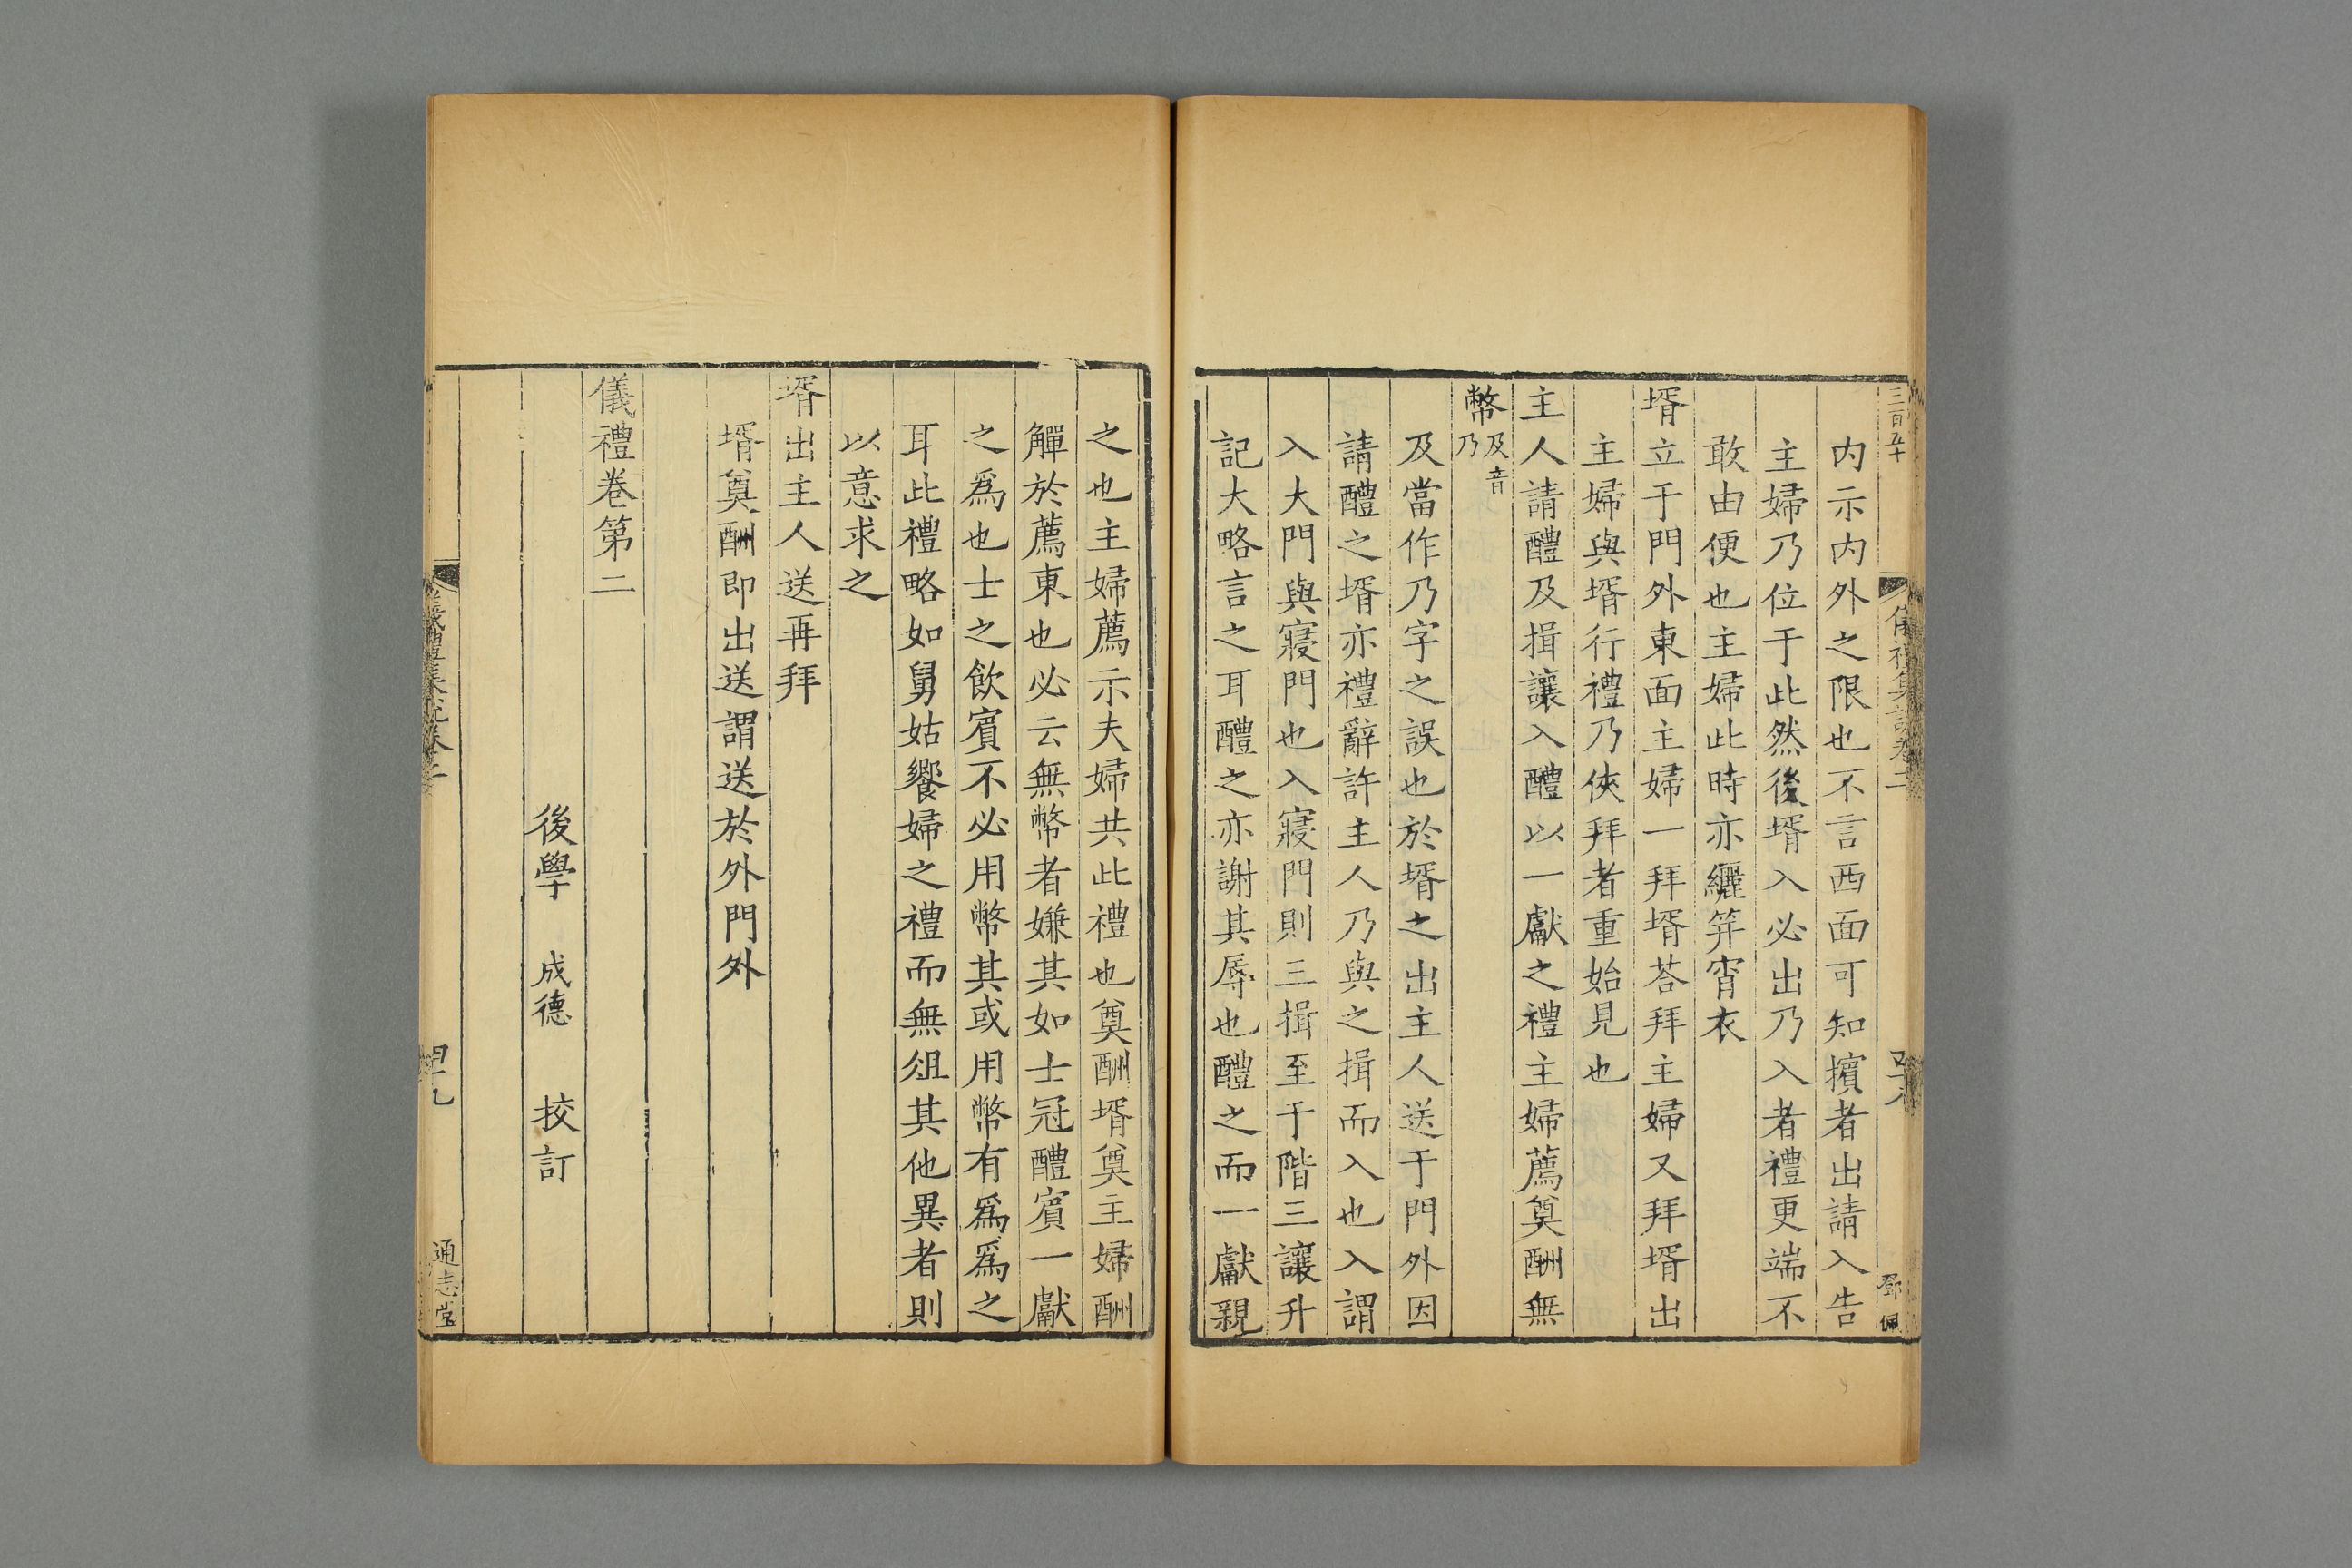 三百五十
内示内外之限也不言西面可知擯者出請入告
主婦乃位于此然後壻入必出乃入者禮更端不
敢由便也主婦此時亦纚笄宵衣
壻立于門外東面主婦一拜壻荅拜主婦又拜壻出
主婦與壻行禮乃俠拜者重始見也
主人請醴及揖讓入醴以一獻之禮主婦薦奠酬無
幣及音乃
及當作乃字之誤也於壻之出主人送于門外因
請醴之壻亦禮辭許主人乃與之揖而入也入謂
入大門與寢門也入寢門則三揖至于階三讓升
記大略言之耳醴之亦謝其辱也醴之而一獻親
之也主婦薦示夫婦共此禮也奠酬壻奠主婦酬
觶於薦東也必云無幣者嫌其如士冠醴賓一獻
之爲也士之飲賓不必用幣其或用幣有爲爲之
耳此禮略如舅姑饗婦之禮而無俎其他異者則
以意求之
壻出主人送再拜
壻奠酬即出送謂送於外門外
儀禮卷第二
後學 成德 挍訂
通志堂